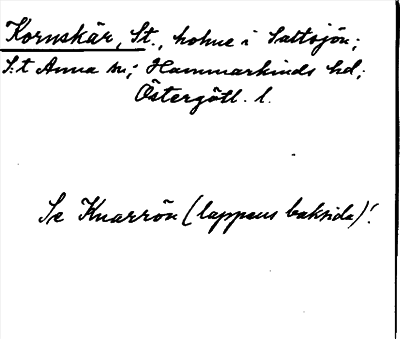 Kornskär, St., holme i Saltsjön;
S:t Anna sn; Hammarkinds hd;
Östergötl. l.
Se Knarrön (lappens baksida)!